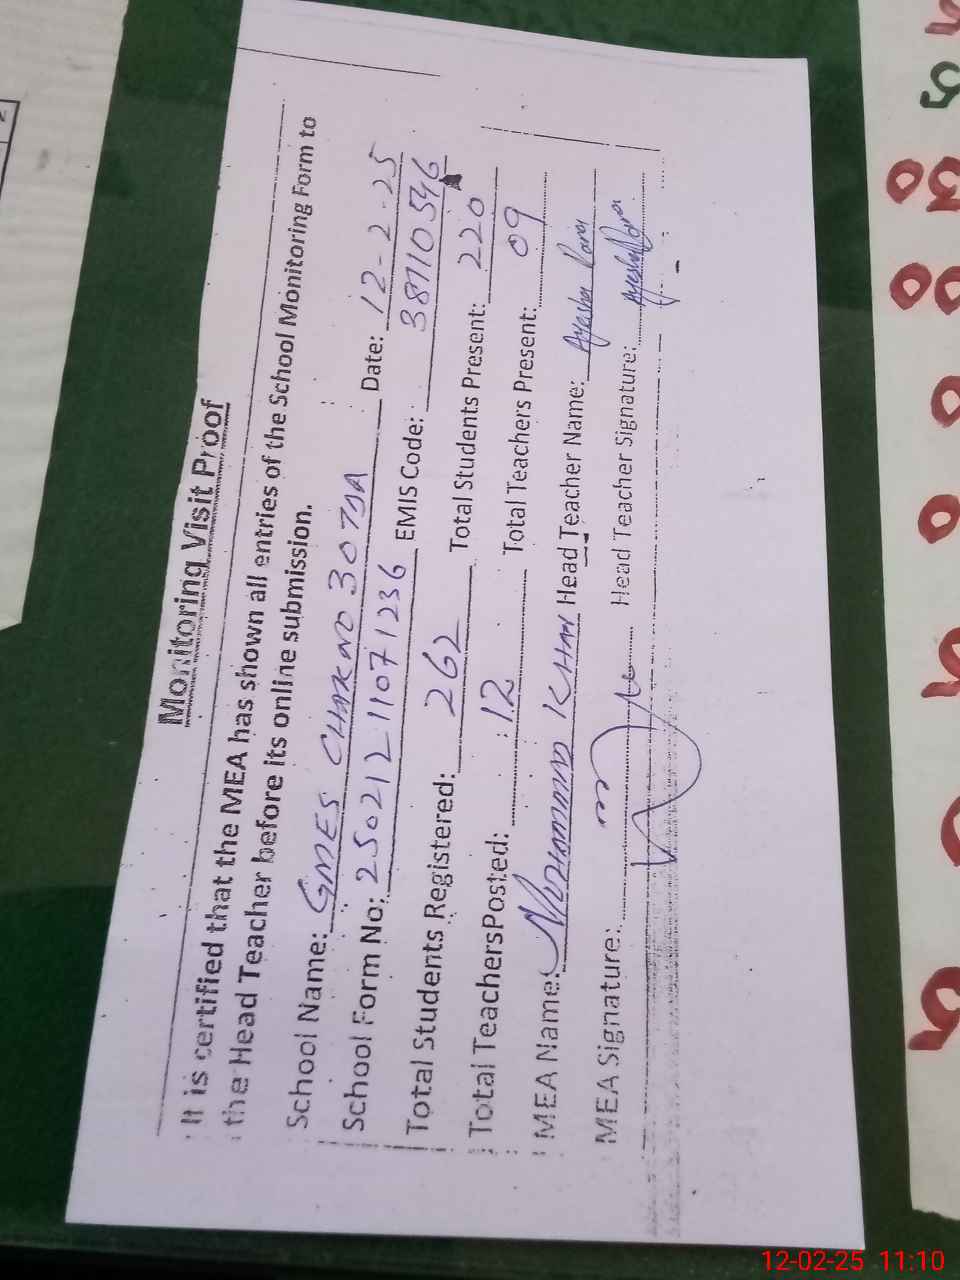 Monitoring Visit Proof
It is certified that the MEA has shown all entries of the School Monitoring Form to
the Head Teacher before its online submission.
School Name: GMES CHAK NO 30 TDA Date: 12-2-25
School Form No: 250212 1107 1236 EMIS Code: 38710546
Total Students Registered: 262 Total Students Present: 220
Total TeachersPosted: 12 Total Teachers Present: 09
MEA Name: Muhammad KHAN Head Teacher Name: Ayesha
MEA Signature: Head Teacher Signature: Ayesha
12-02-25 11:10